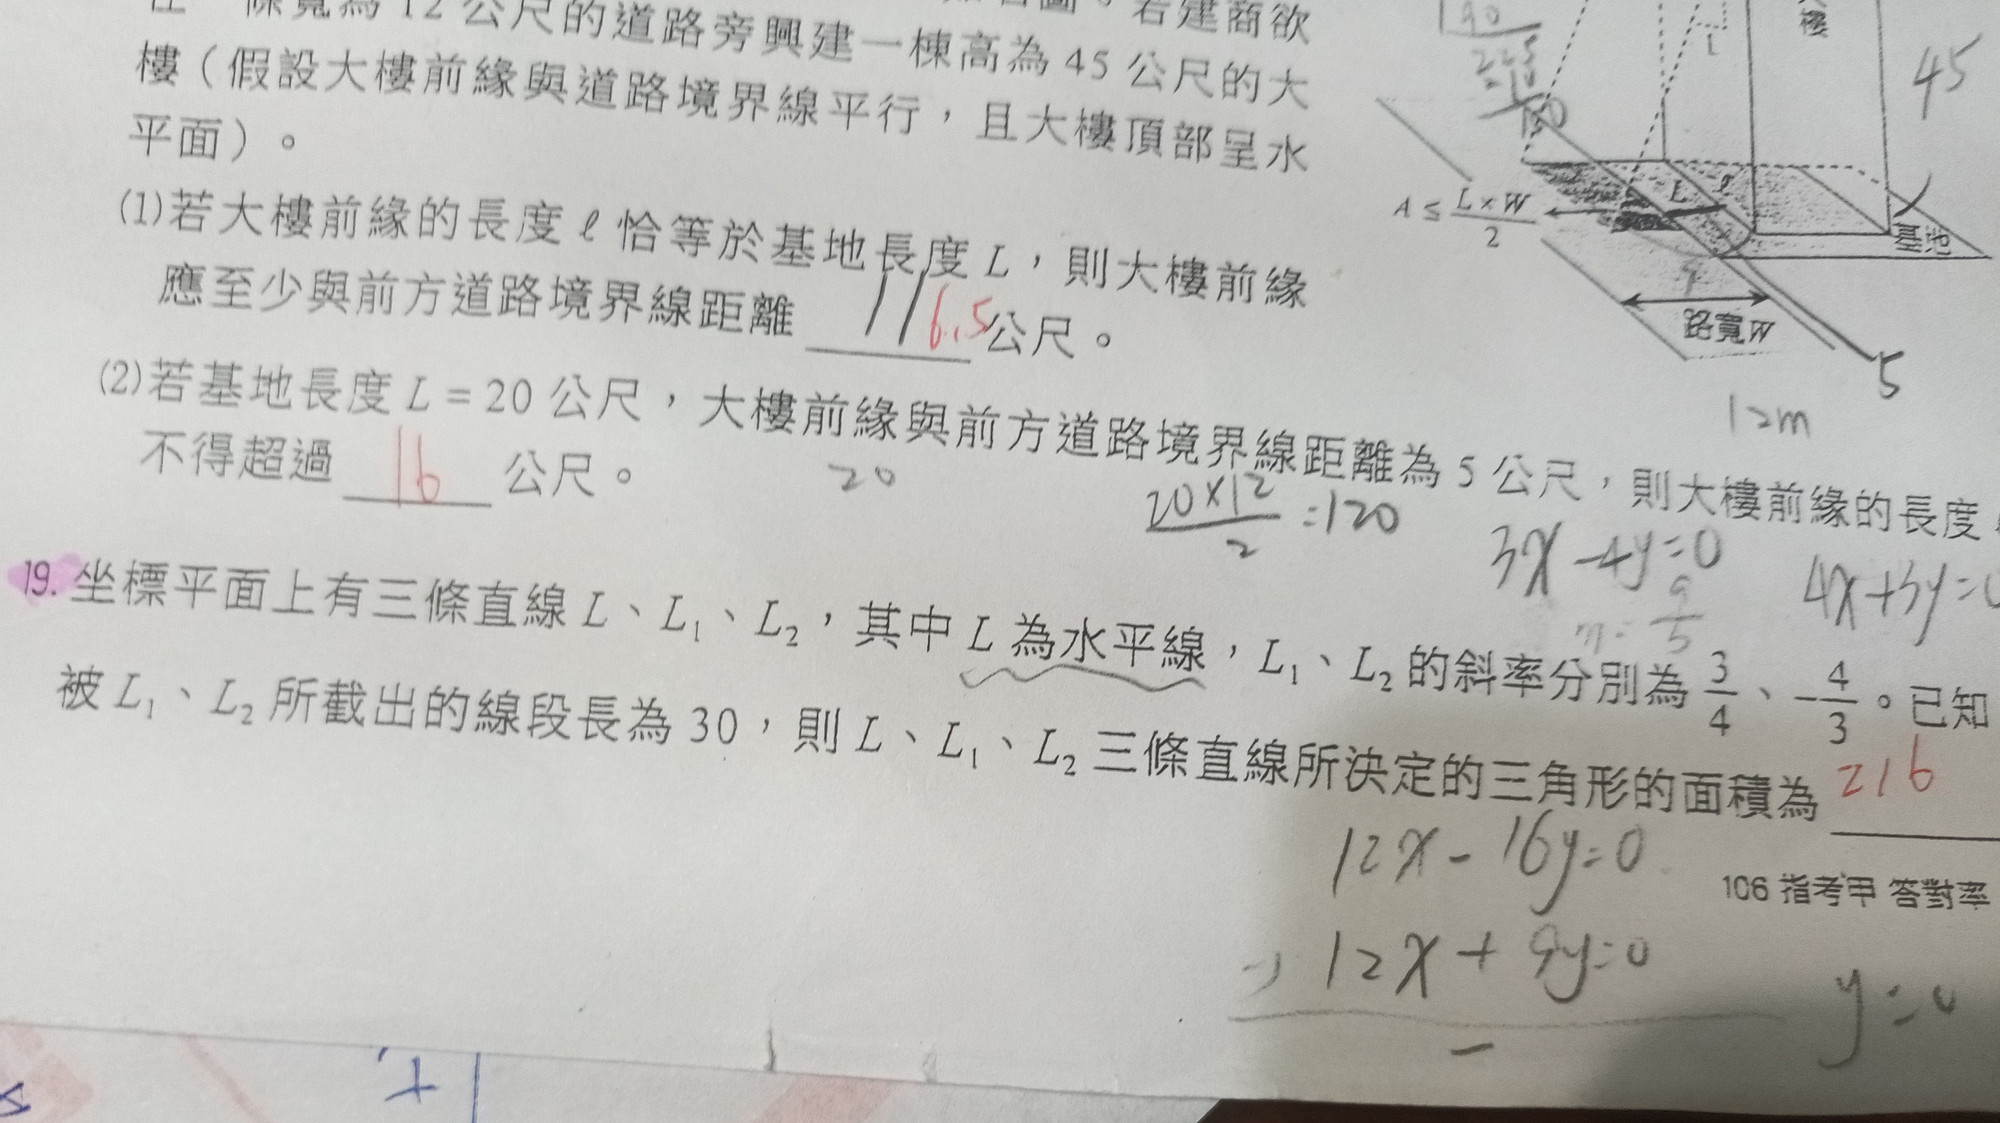 條寬為 12 公尺的道路旁興建一棟高為 45 公尺的大
若建商欲
樓（假設大樓前緣與道路境界線平行，且大樓頂部呈水
平面）。
⑴若大樓前緣的長度 ℓ 恰等於基地長度 L，則大樓前緣
應至少與前方道路境界線距離 6.5 公尺。
⑵若基地長度 L = 20 公尺，大樓前緣與前方道路境界線距離為 5 公尺，則大樓前緣的長度
不得超過 16 公尺。
20
20×12/2 = 120
3x - 4y = 0
4x + 3y = 0
19. 坐標平面上有三條直線 L、L₁、L₂，其中 L 為水平線，L₁、L₂ 的斜率分別為 3/4、-4/3。已知
被 L₁、L₂ 所截出的線段長為 30，則 L、L₁、L₂ 三條直線所決定的三角形的面積為 216
12x - 16y = 0
106 指考甲 答對率
-) 12x + 9y = 0
y = 0
樓
1
45
A ≤ L×W/2
L
ℓ
基地
路寬W
5
12m